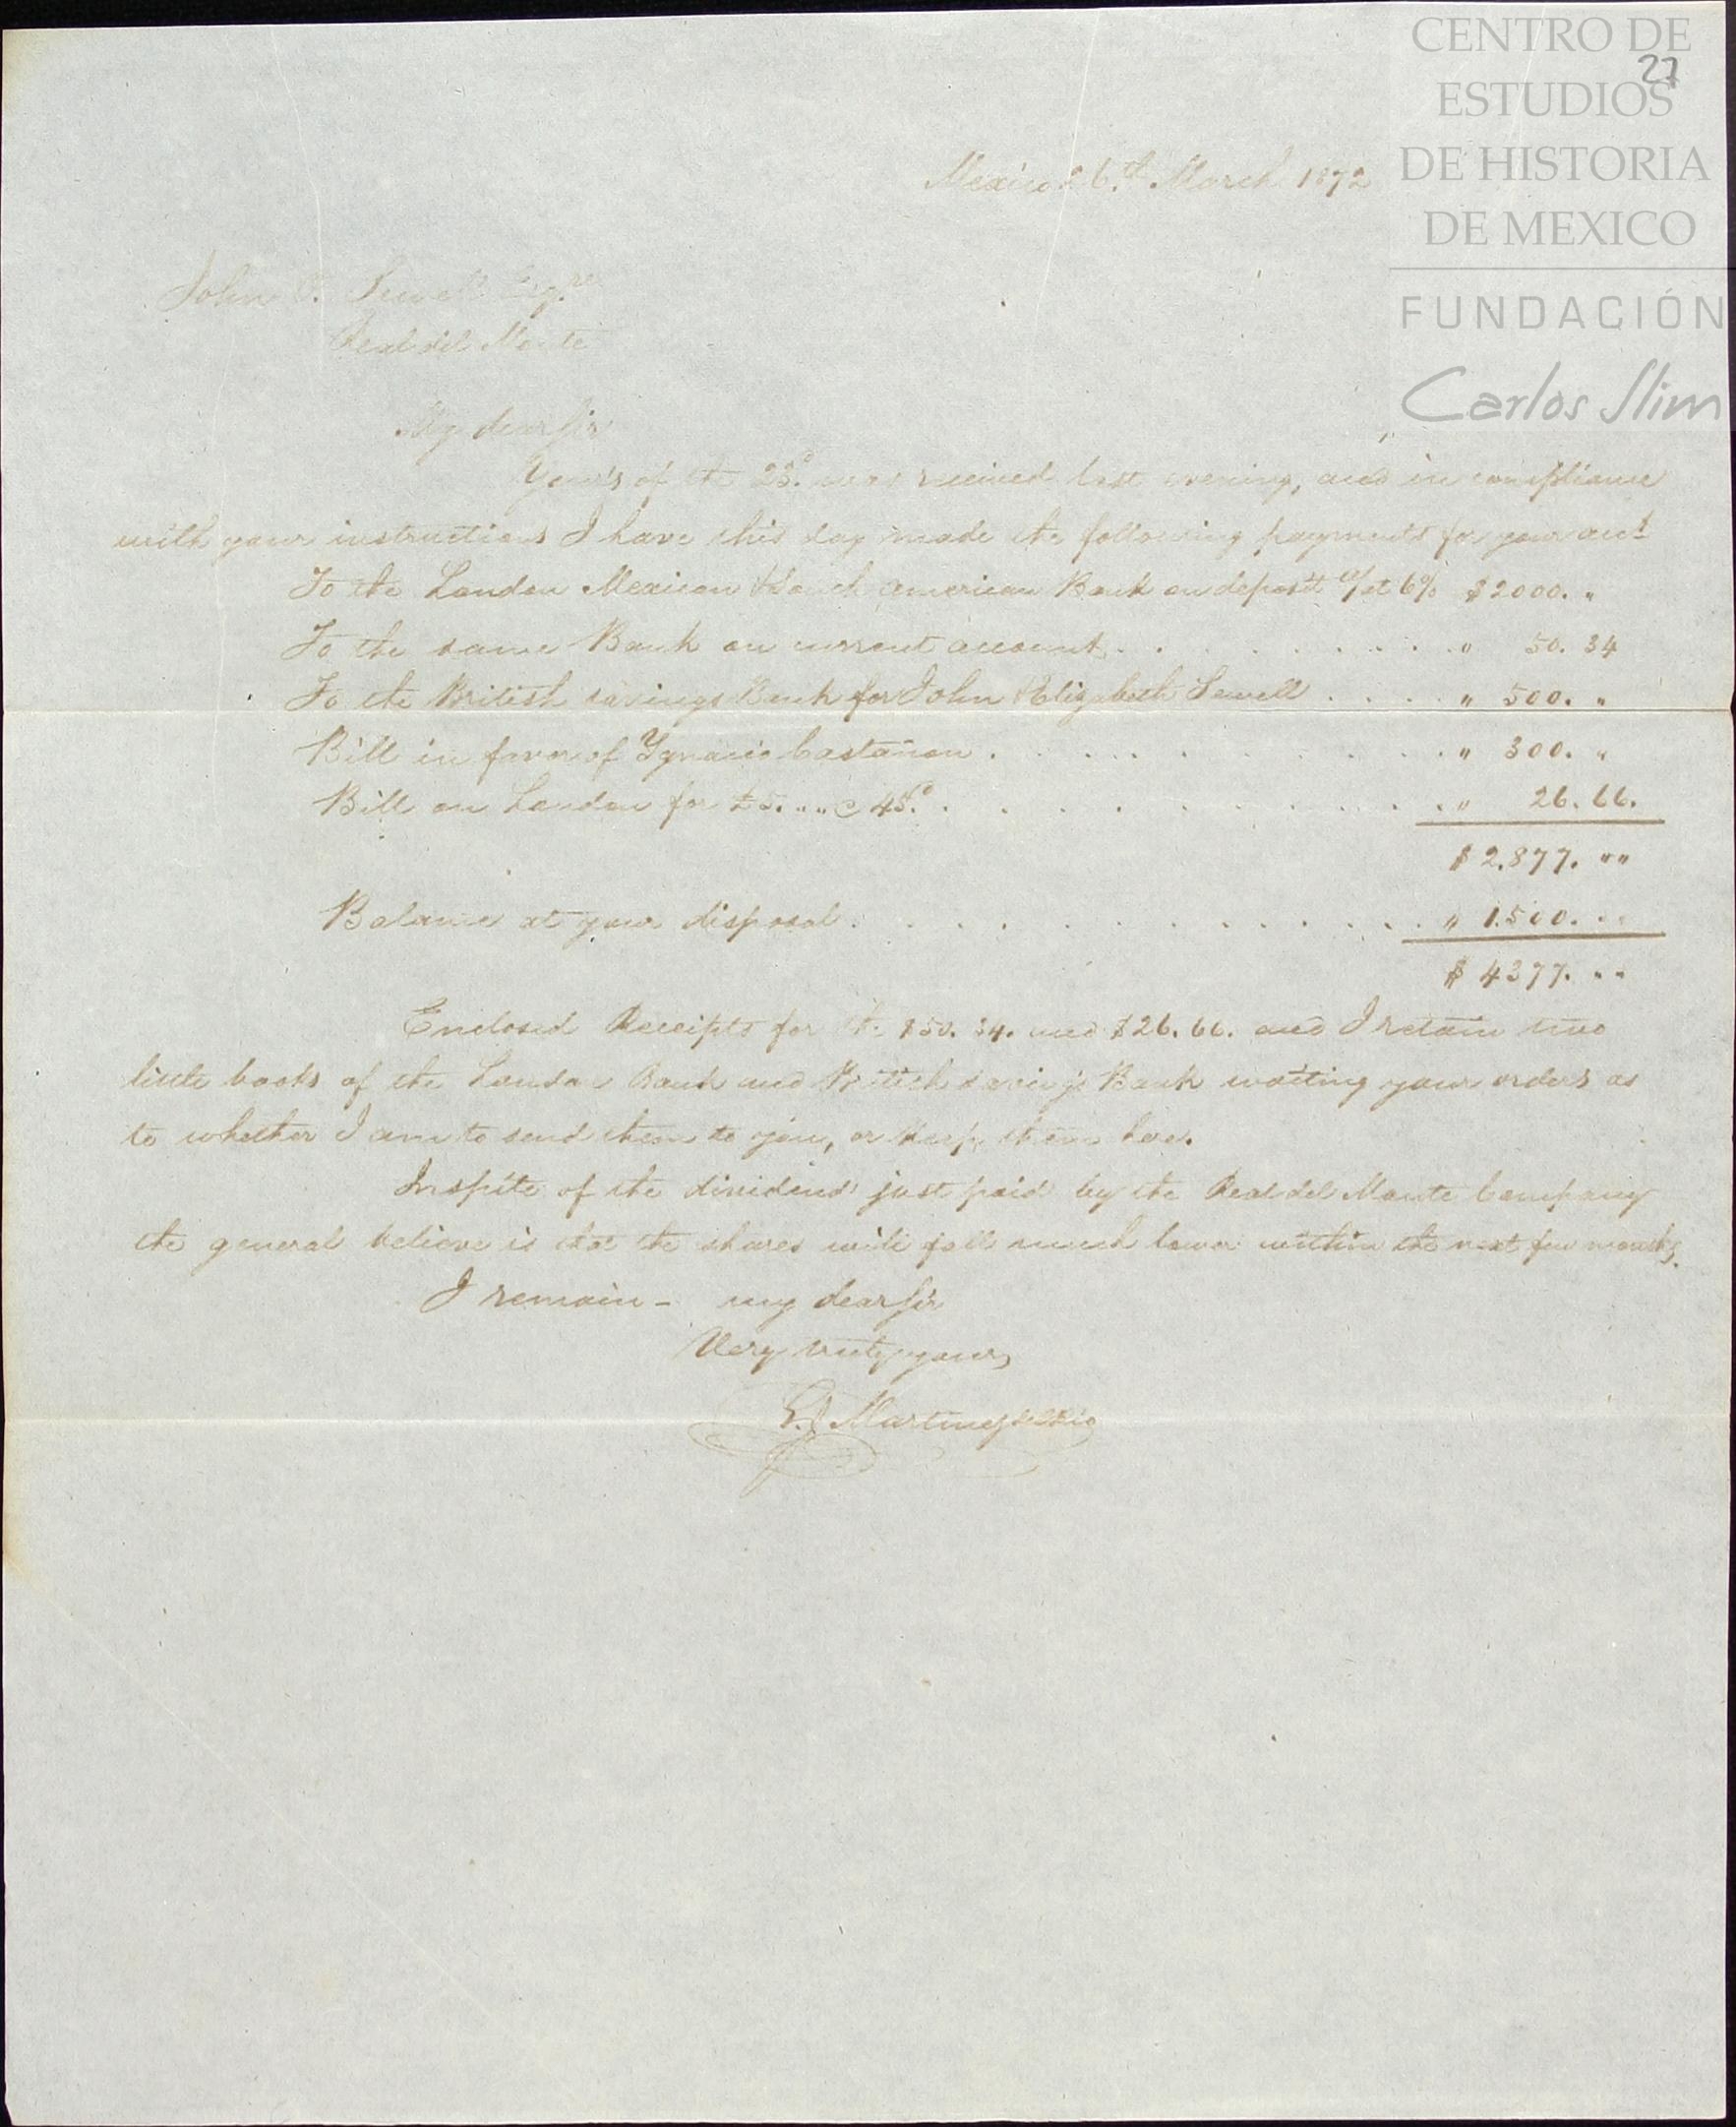 CENTRO DE
27
ESTUDIOS
DE HISTORIA
DE MEXICO
FUNDACIÓN
Carlos Slim
Mexico 26.th March 1872
John Sewell Esq.re
Real del Monte
My dear Sir
Your's of the 23.d was received last evening, and in compliance
with your instructions I have this day made the following payments for your acct
To the London Mexican & South American Bank on deposit a/c at 6% $2000. "
To the same Bank on current account . . . . . . . . . " 50. 34
To the British savings Bank for John & Elizabeth Sewell . . . . " 500. "
Bill in favor of Ygnacio Castañon . . . . . . . . . . " 300. "
Bill on London for £5. " " @ 45.d . . . . . . . . . . " 26. 66.
$ 2.877. " "
Balance at your disposal . . . . . . . . . . . " 1.500. " "
$ 4377. " "
Enclosed Receipts for the $50. 34. and $26. 66. and I retain two
little books of the London Bank and British savings Bank waiting your orders as
to whether I am to send them to you, or keep them here.
Inspite of the dividend just paid by the Real del Monte Company
the general believe is that the shares will fall much lower within the next few months.
I remain - my dear Sir
Very truly yours
Martinez del Rio